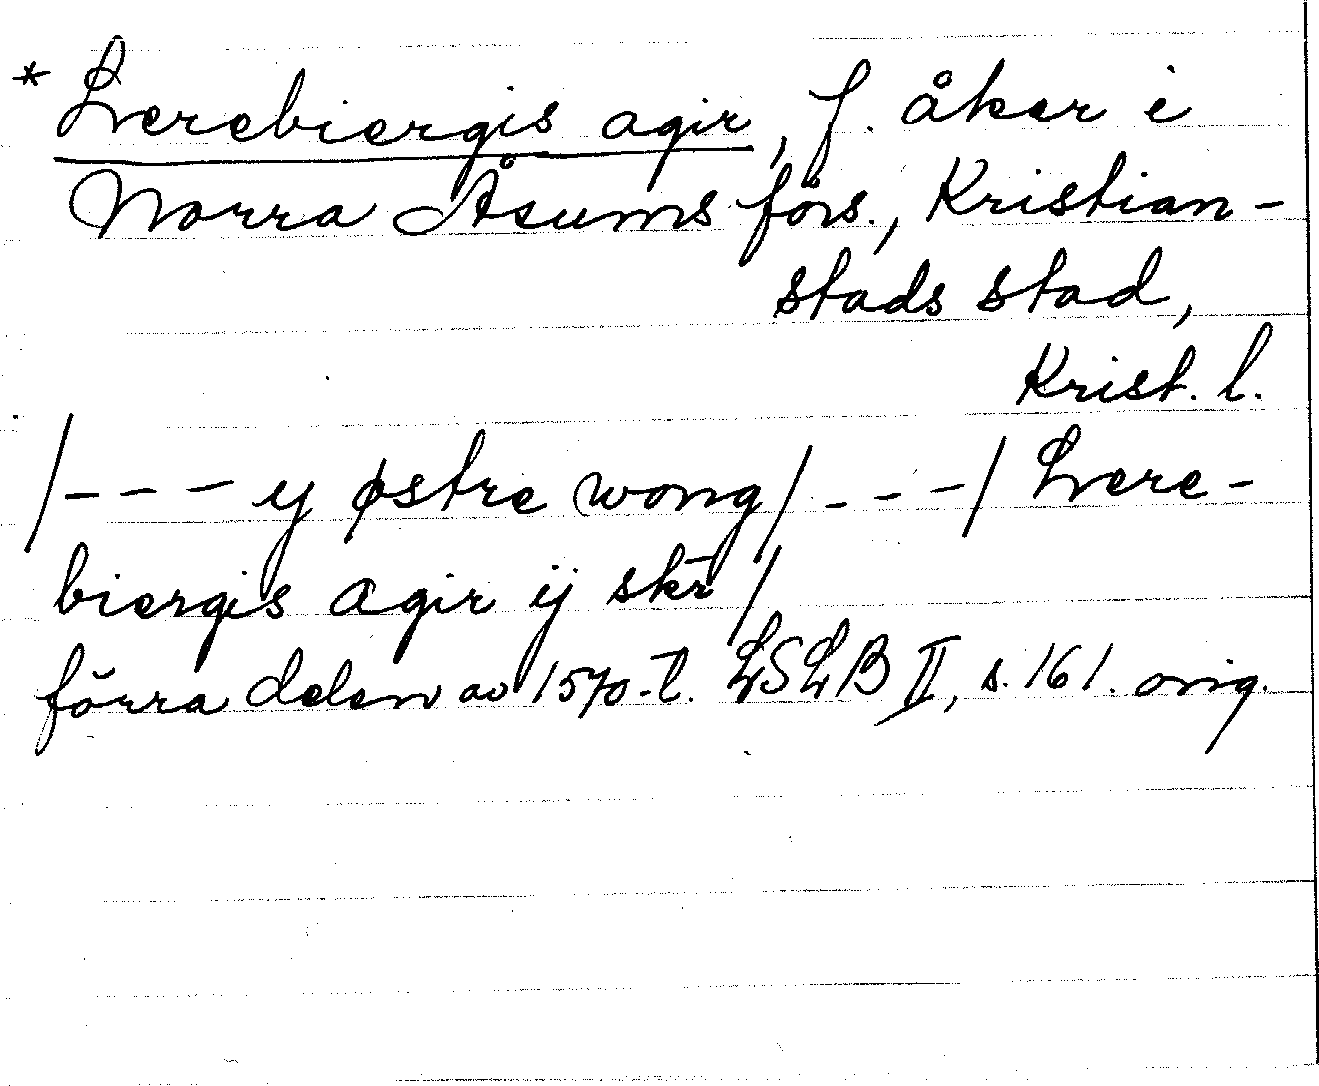 * Lerebiergis agir, f. åker i
Norra Åsums förs., Kristian-
stads stad,
Krist. l.
/--- y østre wong/---/ Lere-
biergis agir ij skr̄/
förra delen av 1570-t. LSLB II, s. 161. orig.